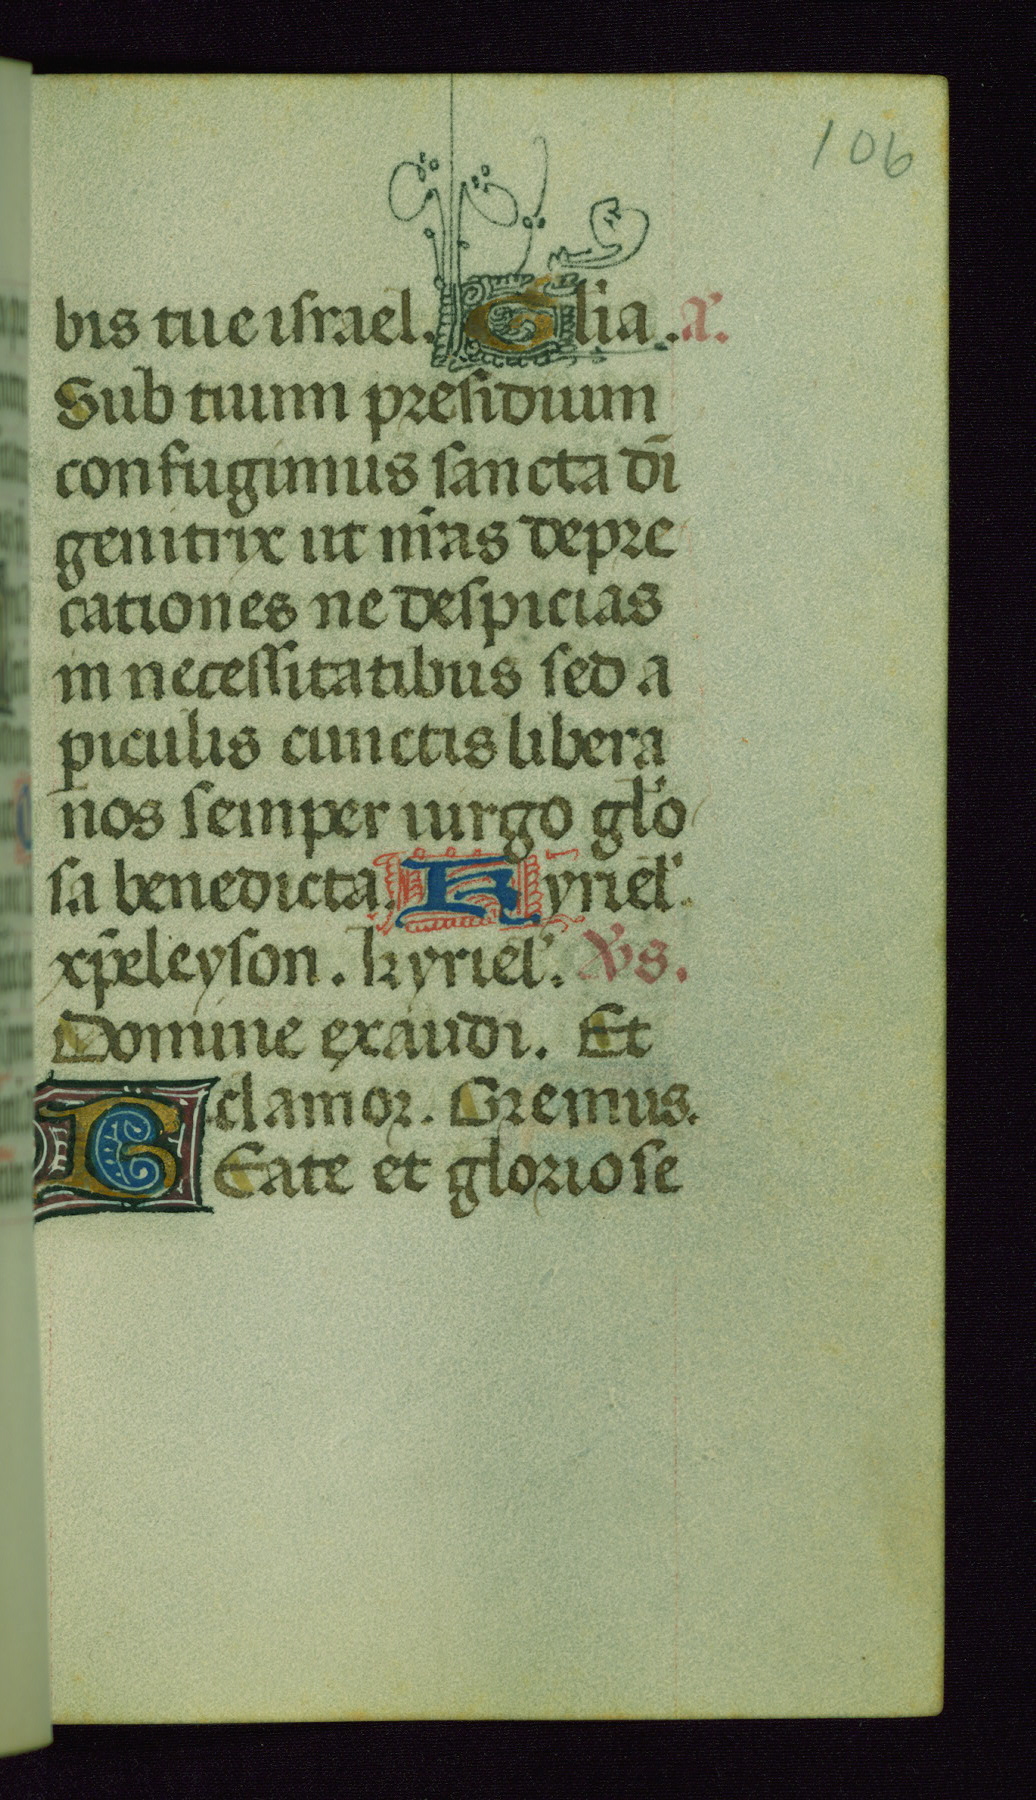 106
bis tue israel. Glia. a.
Sub tuum presidium
confugimus sancta dī
genitrix ut nr̄as depre
cationes ne despicias
in necessitatibus sed a
ꝑiculis cunctis libera
nos semper uirgo gl'o
sa benedicta. Kyriel'.
xp̄eleyson. kyriel'. V's.
Domine exaudi. Et
clamor. Oremus.
BEate et gloriose